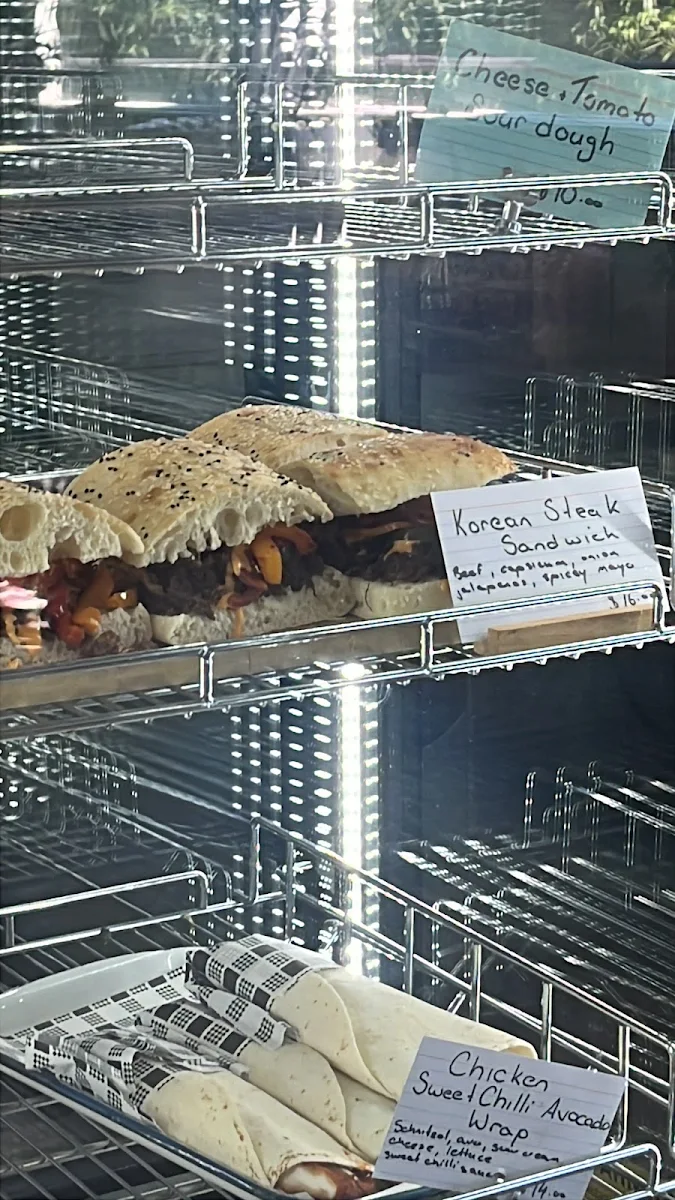 Cheese + Tomato
Sour dough
$10.00
Korean Steak
Sandwich
Beef, capsicum, onion
jalapenos, spicy mayo
$16.00
Chicken
Sweet Chilli Avocado
Wrap
Schnitzel, avo, sour cream
cheese, lettuce
sweet chilli sauce
$14.00